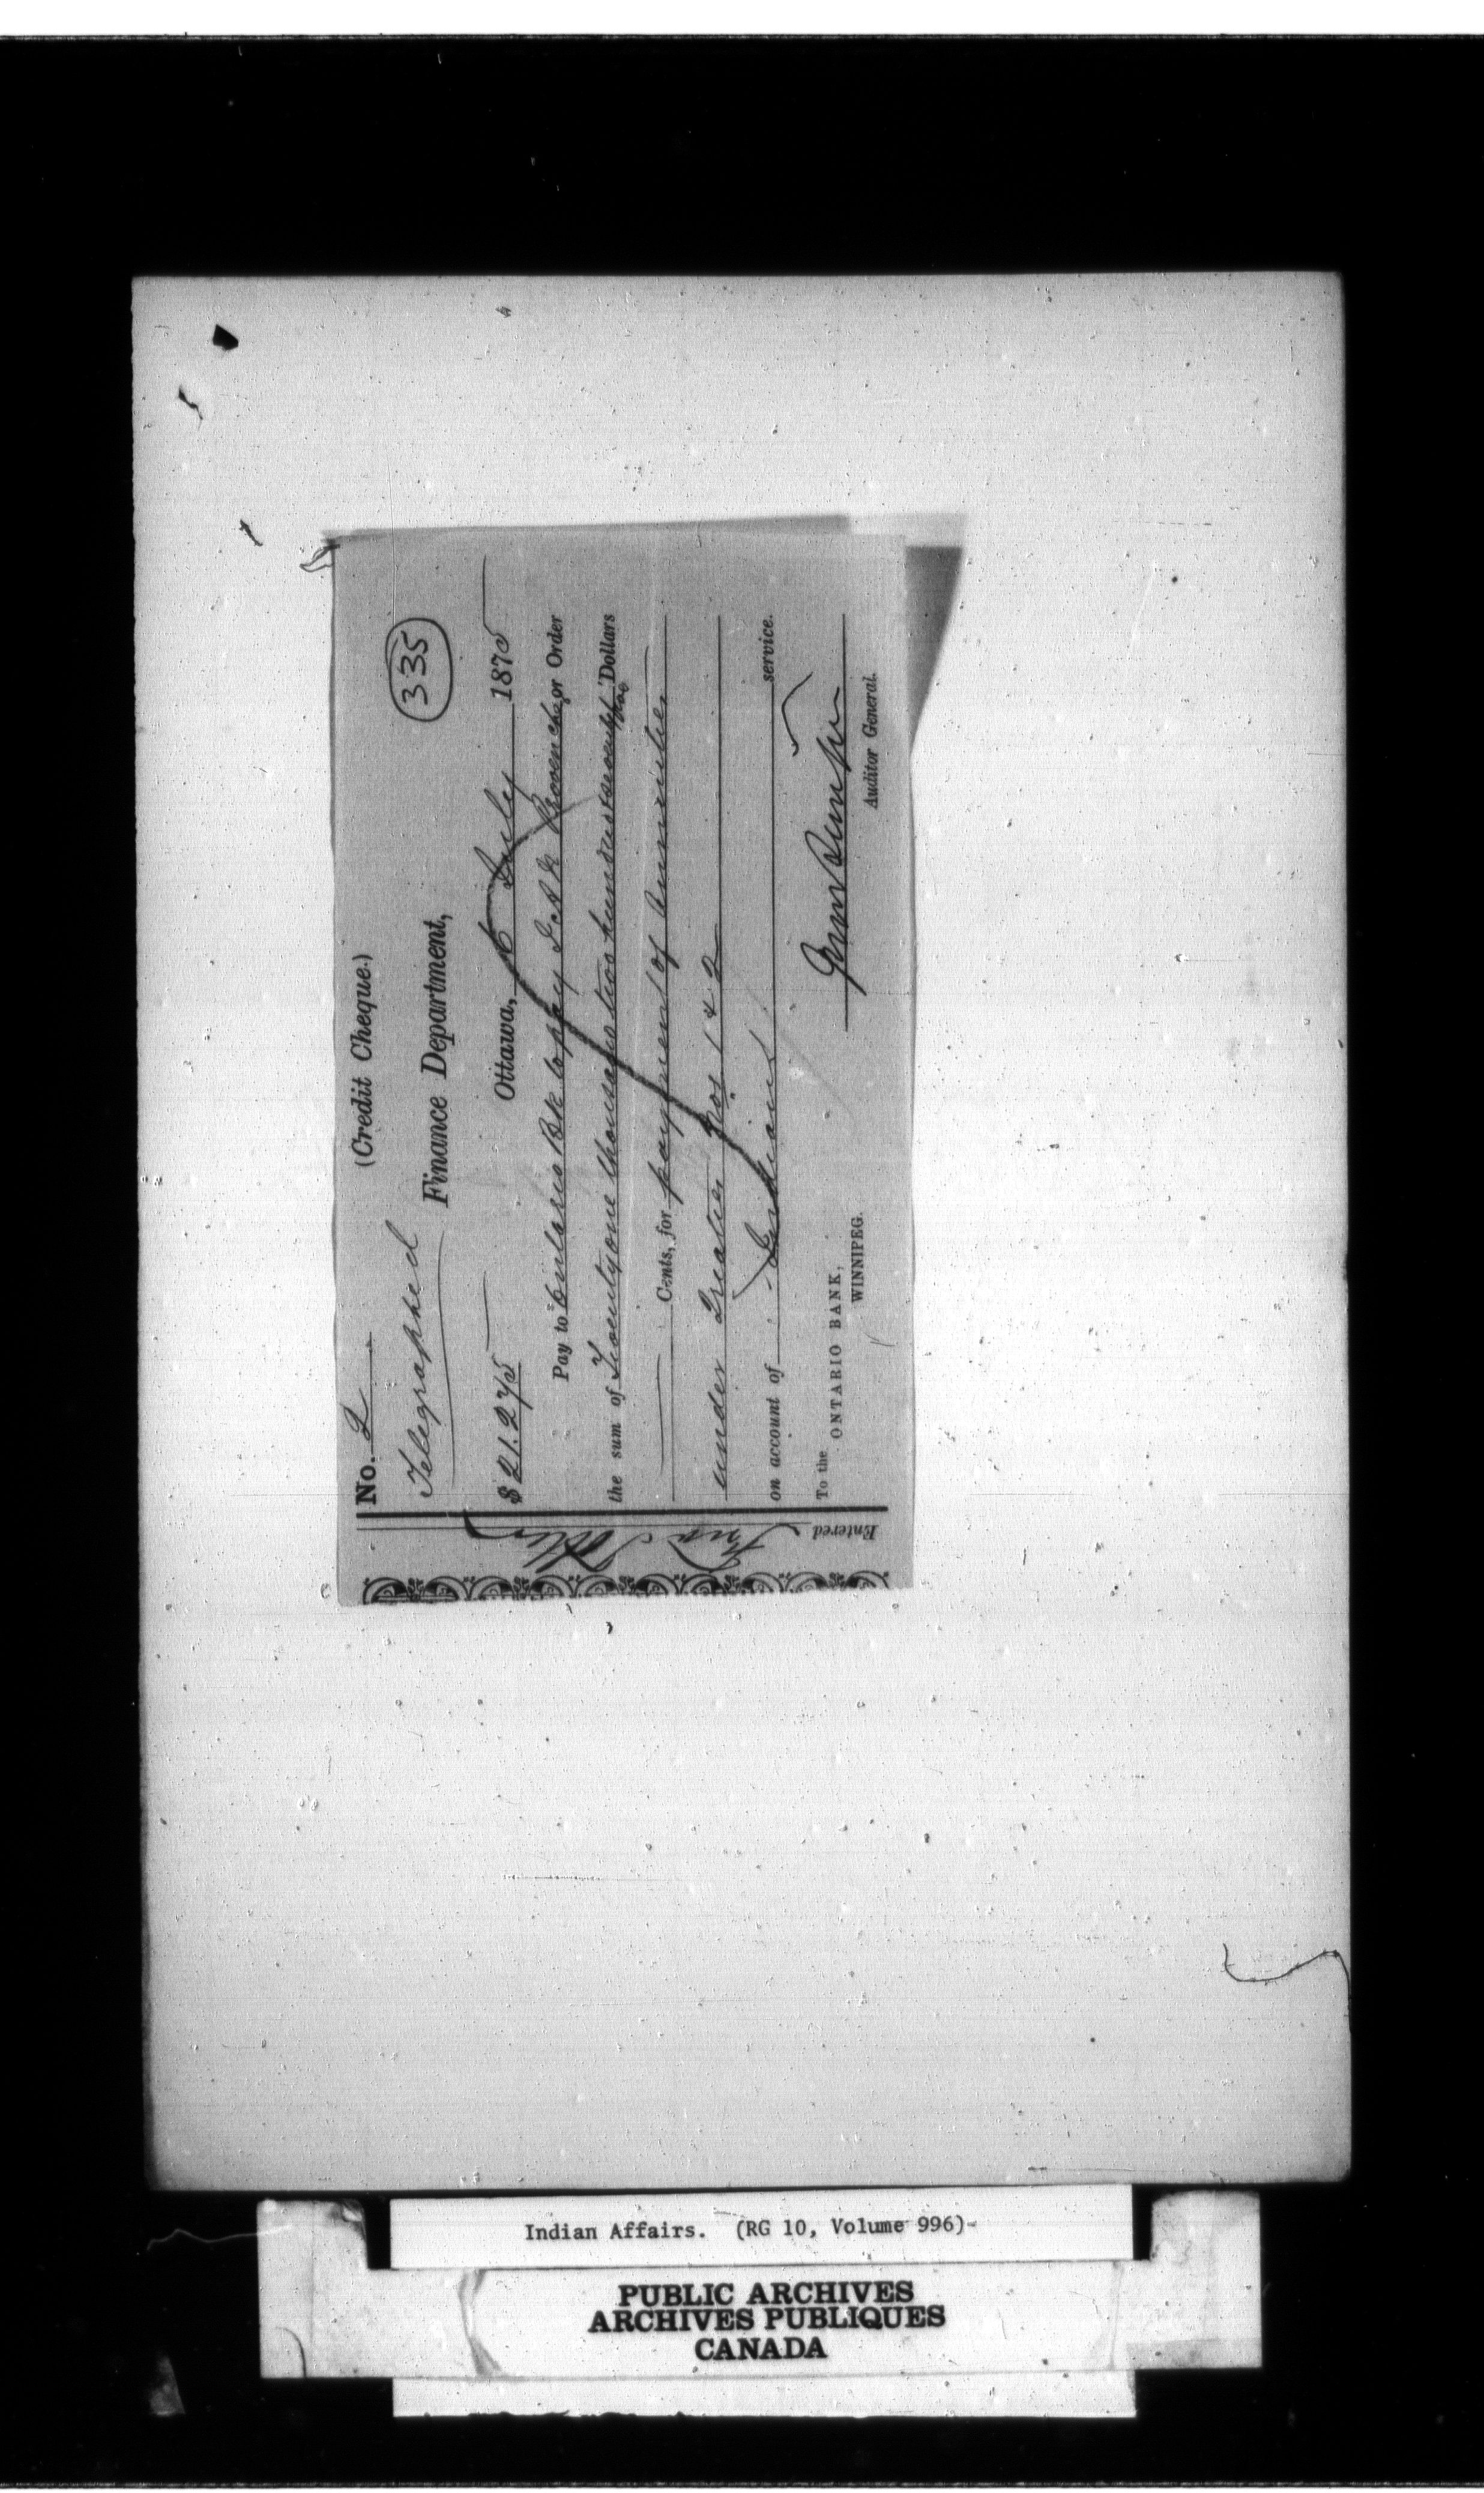 No. 2 (Credit Cheque.)
Telegraphed 335
Finance Department,
$21.275 Ottawa, 6 July 1875
Pay to Ontario Bk to pay J A N Provencher or Order
the sum of Twentyone thousand two hundred & seventy five Dollars
Cents, for payment of Annuities
under Treaties Nos 1 & 2
on account of Indians service.
To the ONTARIO BANK,
WINNIPEG.
Auditor General.
Entered
Indian Affairs. (RG 10, Volume 996)
PUBLIC ARCHIVES
ARCHIVES PUBLIQUES
CANADA